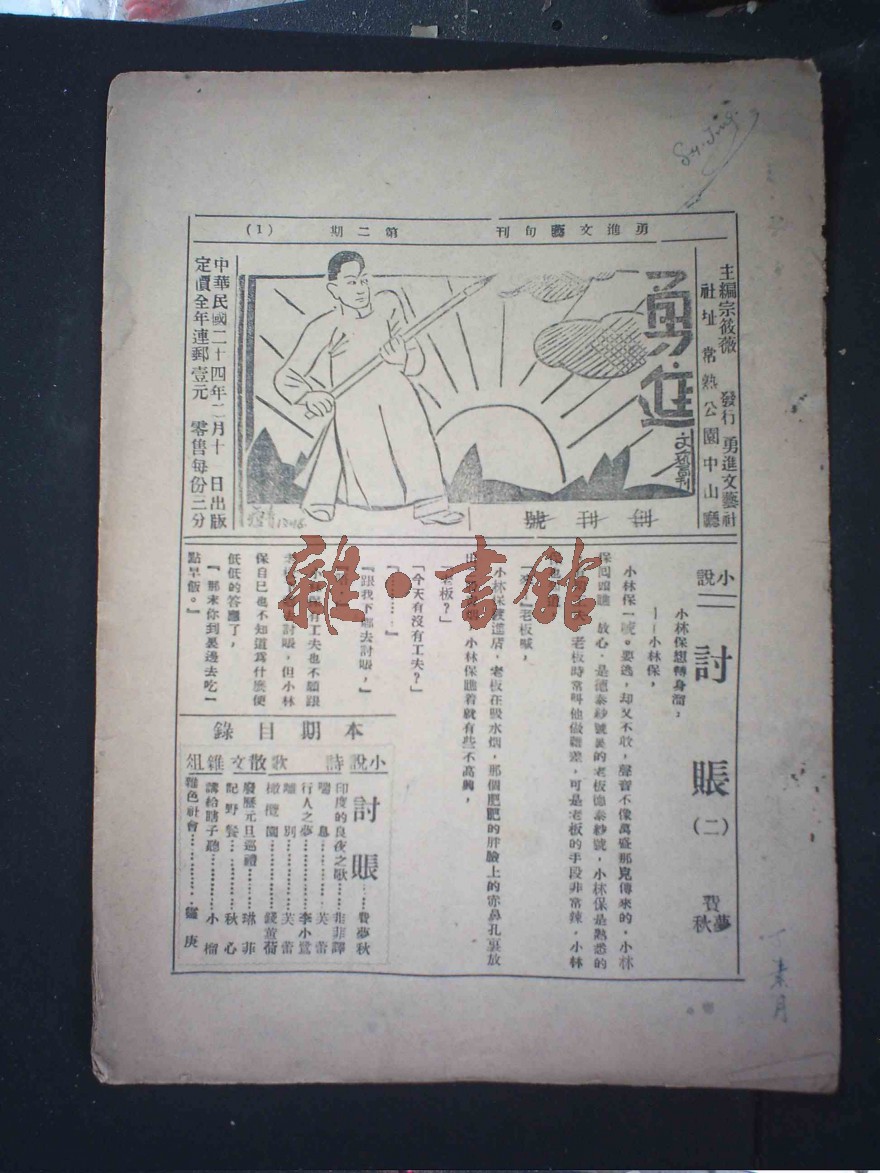 勇進文藝旬刊　第二期　(1)
主編宗筱薇　發行勇進文藝社
社址　常熟公園中山廳
勇進
文藝旬刊
中華民國二十四年二月十日出版
定價全年連郵壹元　零售每份三分
小說
討賬(二)
費夢秋
小林保想轉身溜，
——小林保，
小林保一嚇。要逃，却又不敢，聲音不像萬盛那兒傳來的，小林
保回頭瞧　放心，是德泰紗號裏的老板德泰紗號，小林保是熟悉的
老板時常叫他做雜差，可是老板的手段非常辣，小林
老板喊，
小林保走進店，老板在吸水烟，那個肥肥的胖臉上的赤鼻孔裏放
小林保瞧着就有些不高興，
老板？」
「今天有沒有工夫？」
「……」
「跟我下鄉去討賬，」
有工夫也不願跟
討賬，但小林
保自己也不知道爲什麼便
低低的答應了，
「那末你到裏邊去吃一
點早飯。」
本期目錄
小說　詩歌　散文　雜俎
討賬……費夢秋
印度的良夜之歌……非非譯
喘息……芙蕾
行人之夢……李小鷺
離別……芙蕾
橄欖園……錢萱荷
廢曆元旦巡禮……琳菲
記野餐……秋心
講給瞎子聽……小榴
雜·書館
Su-Jing